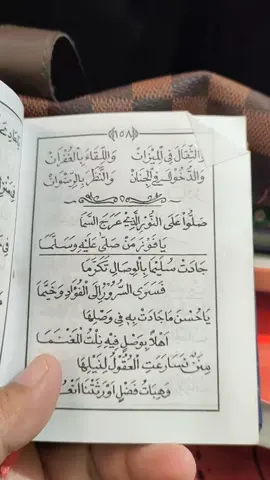 ١٥٨
وَالثِّقَالَ فِي الْمِيْزَانْ وَاللِّقَاءَ بِالْغُفْرَانْ
وَالدُّخُوْلَ فِي الْجِنَانْ وَالنَّظَرَ بِالرِّضْوَانْ
صَلُّوْا عَلَى النُّوْرِ الَّذِيْ عَرَجَ السَّمَا
يَا فَوْزَ مَنْ صَلَّى عَلَيْهِ وَسَلَّمَا
جَادَتْ سُلَيْمَا بِالْوِصَالِ تَكَرُّمَا
فَسَرَى السُّرُوْرُ إِلَى الْفُؤَادِ وَخَيَّمَا
يَا حُسْنَ مَا جَادَتْ بِهِ فِي وَصْلِهَا
أَهْلًا بِوَصْلٍ فِيْهِ نِلْتُ الْمَغْنَمَا
مِنَنٌ تَسَارَعَتِ الْعُقُوْلُ لِنَيْلِهَا
وَهِبَاتُ فَضْلٍ أَوْرَثَتْنَا